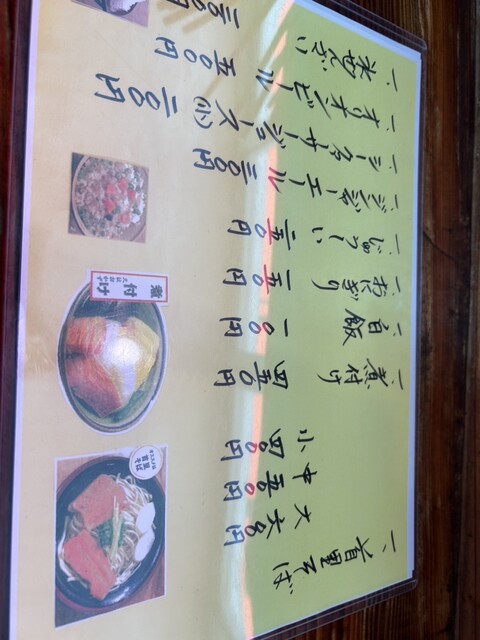 一、首里そば
大 六〇〇円
中 五〇〇円
小 四〇〇円
一、煮付け 四五〇円
一、白飯 一〇〇円
一、おにぎり 一五〇円
一、じゅーしい 二五〇円
一、ジンジャーエール 三〇〇円
一、シークヮーサージュース(小) 二〇〇円
一、オリオンビール 五〇〇円
一、氷ぜんざい 三〇〇円
煮付け